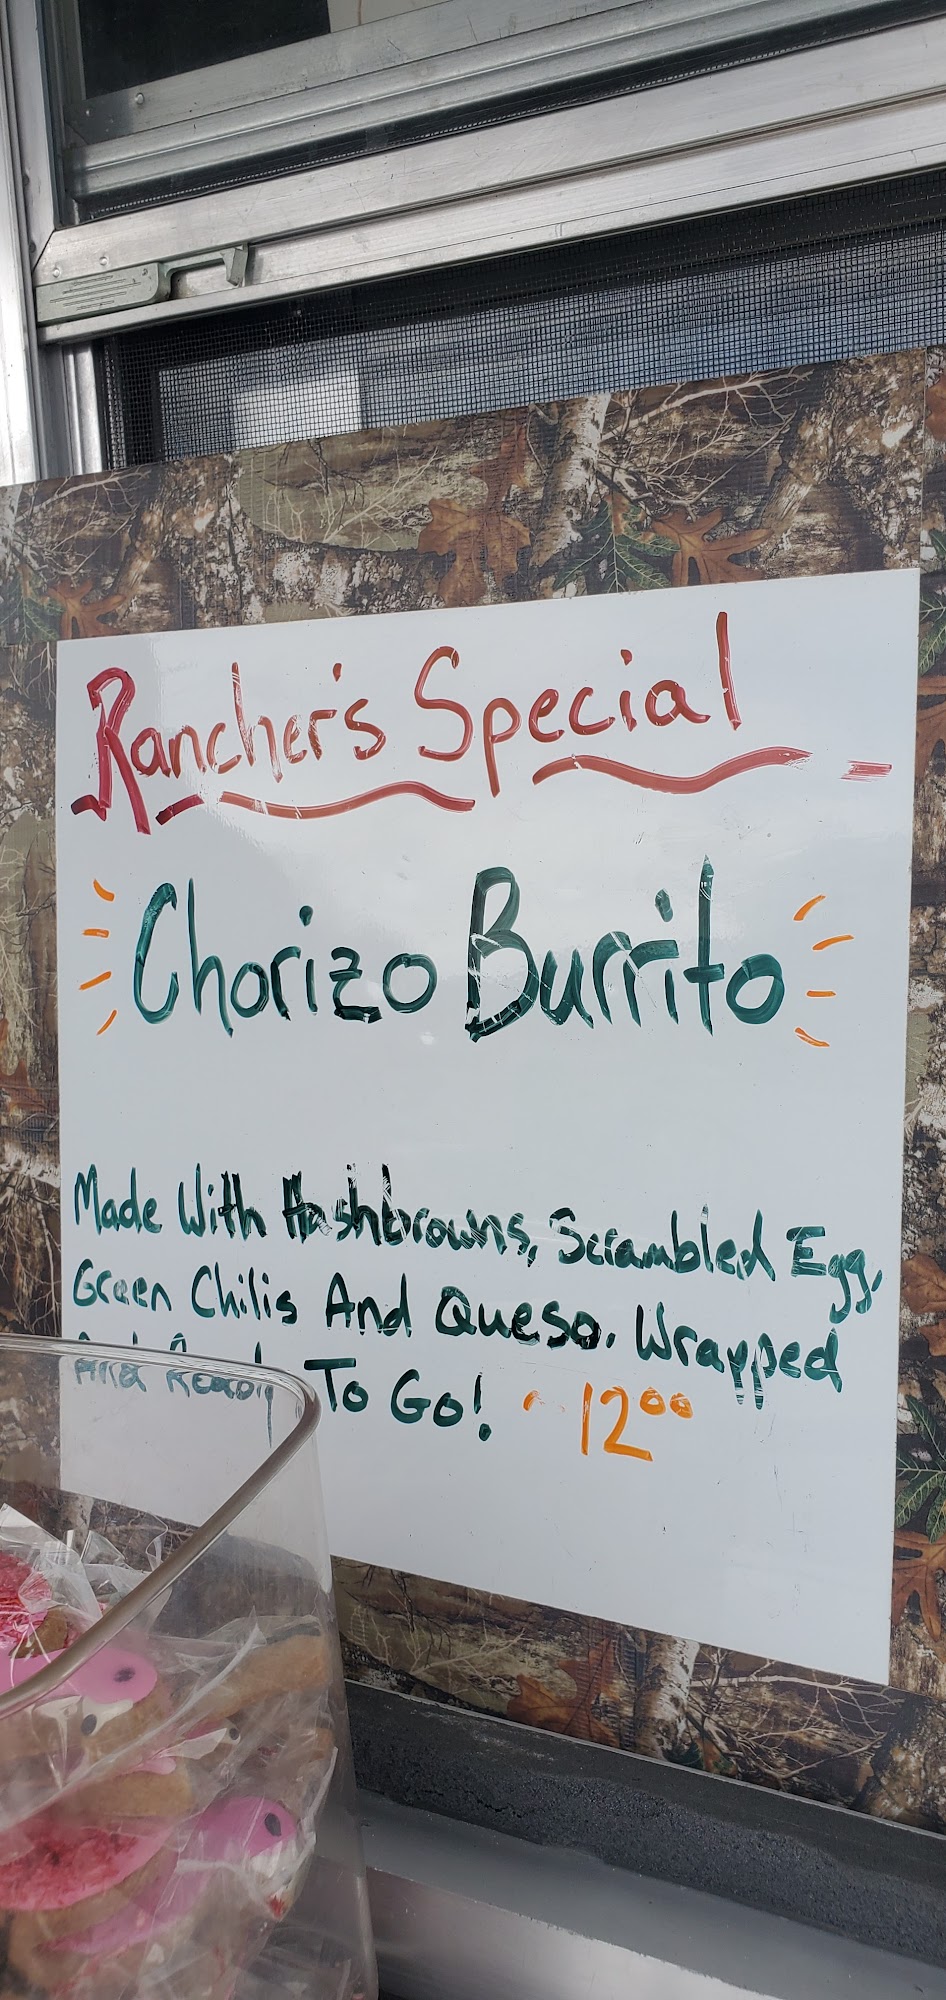 Rancher's Special -
Chorizo Burrito
Made With Hashbrowns, Scrambled Egg,
Green Chilis And Queso. Wrapped
And Ready To Go! - 12⁰⁰